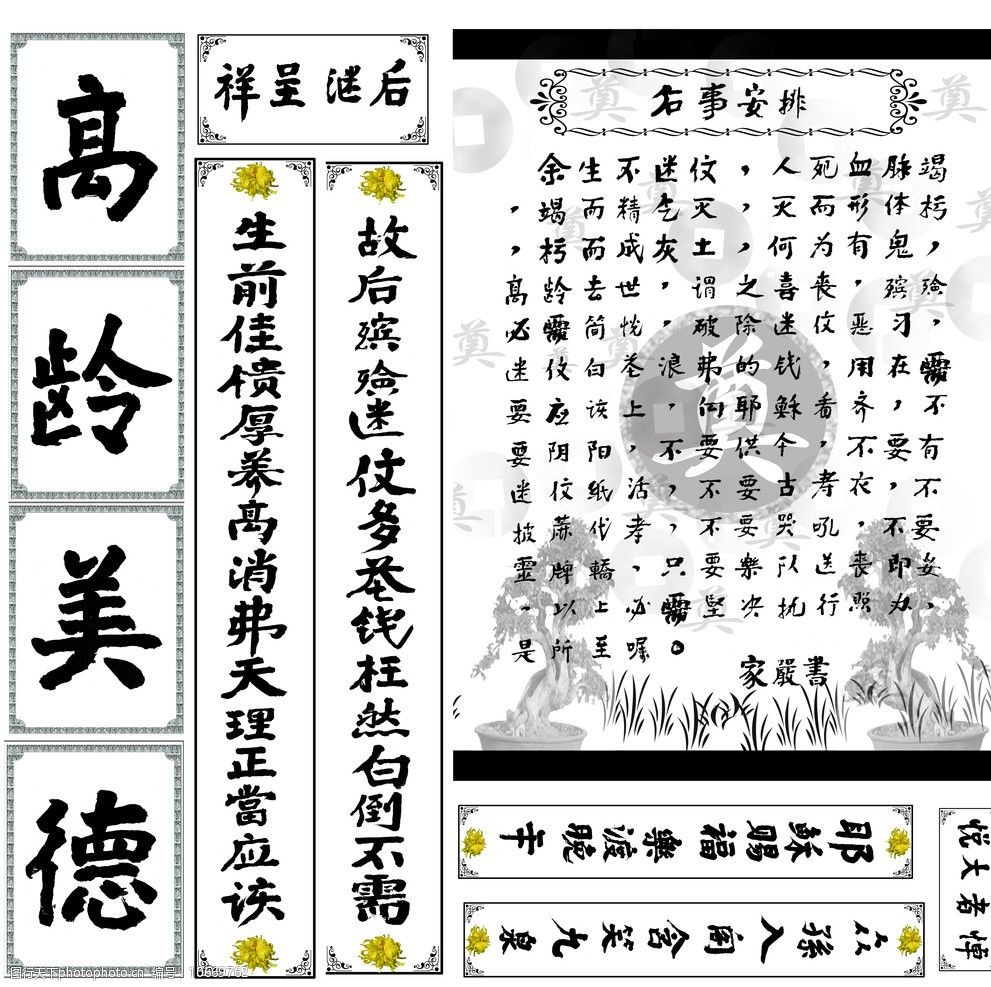 高龄美德
后继呈祥
故后殡殓迷伩多花钱枉然白倒不需
生前佳馈厚养高消弗天理正當应该
后事安排
余生不迷伩，人死血脉竭
，竭而精气灭，灭而形体朽
，朽而成灰土，何为有鬼，
高龄去世，谓之喜丧，殡殓
必需简恍，破除迷伩恶习，
迷伩白花浪弗的钱，用在需
要应该上，向耶稣看齐，不
要阴阳，不要供今，不要有
迷伩纸活，不要古孝衣，不
披蔴代孝，不要哭吼，不要
靈牌轎，只要樂队送丧即
、以上必需坚决执行照办，
是所至嘱。
家嚴書
奠
耶稣賜福樂渡晚年
孫入含笑九泉
悦大者悼
图行天下photophoto.cn